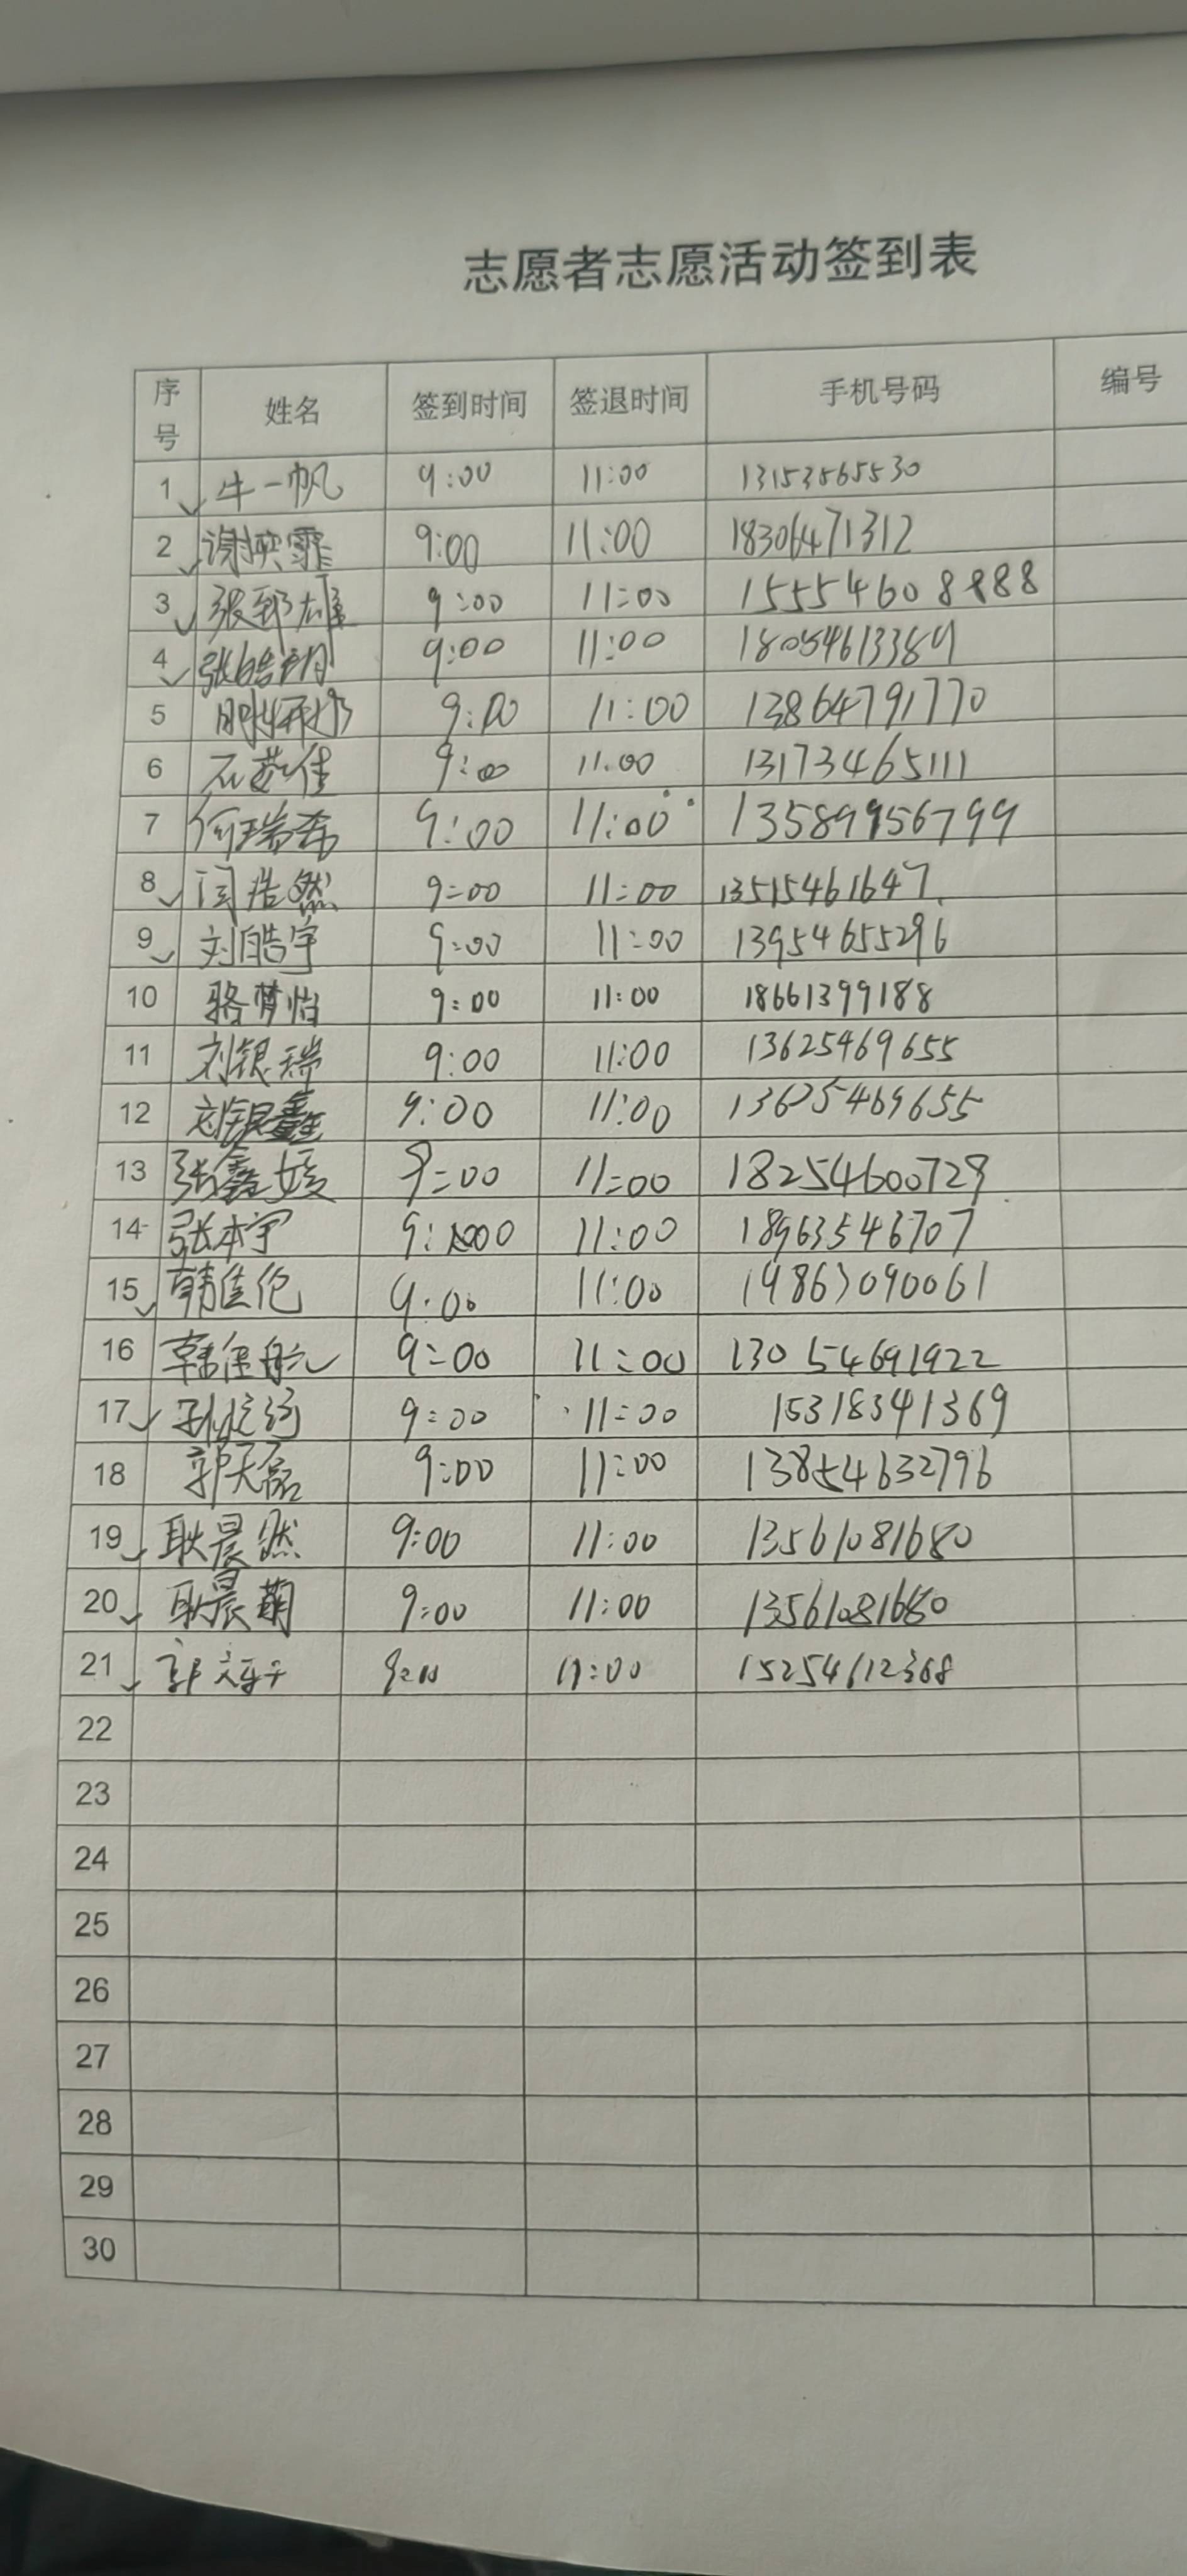 志愿者志愿活动签到表
序号 姓名 签到时间 签退时间 手机号码 编号
1 牛一帆 9:00 11:00 13153565530
2 谢映霏 9:00 11:00 18306471312
3 张郅雄 9:00 11:00 15554608888
4 张皓玥 9:00 11:00 18054613389
5 9:00 11:00 13864791770
6 石蕊佳 9:00 11:00 13173465111
7 何瑞希 9:00 11:00 13589956799
8 闫浩然 9:00 11:00 13515461647
9 刘皓宇 9:00 11:00 13954655296
10 骆梦怡 9:00 11:00 18661399188
11 刘银瑞 9:00 11:00 13625469655
12 刘银鑫 9:00 11:00 13625469655
13 张鑫媛 9:00 11:00 18254600729
14 张本宇 9:00 11:00 18963546707
15 韩佳伦 9:00 11:00 19863090061
16 韩佳航 9:00 11:00 13054691922
17 9:00 11:00 15318341369
18 郭天磊 9:00 11:00 13854632796
19 耿晨然 9:00 11:00 13561081680
20 耿晨萌 9:00 11:00 13561081680
21 9:00 11:00 15254612368
22
23
24
25
26
27
28
29
30